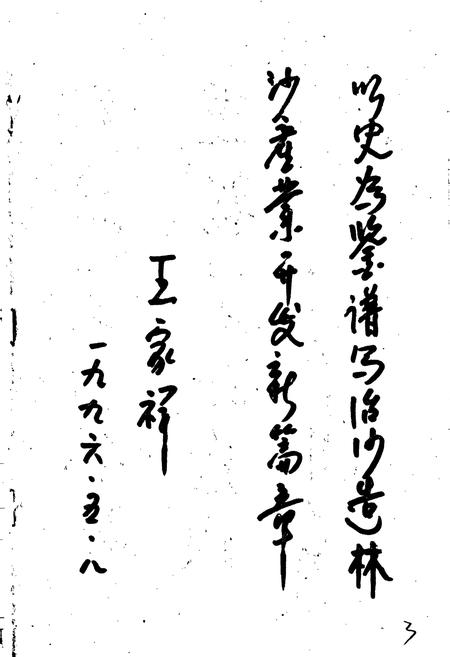 以史为鉴谱写治沙造林
沙产业开发新篇章
王家祥
一九九六·五·八
3